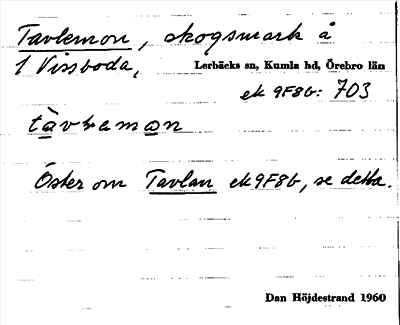 Tavlemon, skogsmark å
1 Vissboda,
Lerbäcks sn, Kumla hd, Örebro län
ek 9F8b: 703
tàvlemon
Öster om Tavlan ek 9F8b, se detta.
Dan Höjdestrand 1960